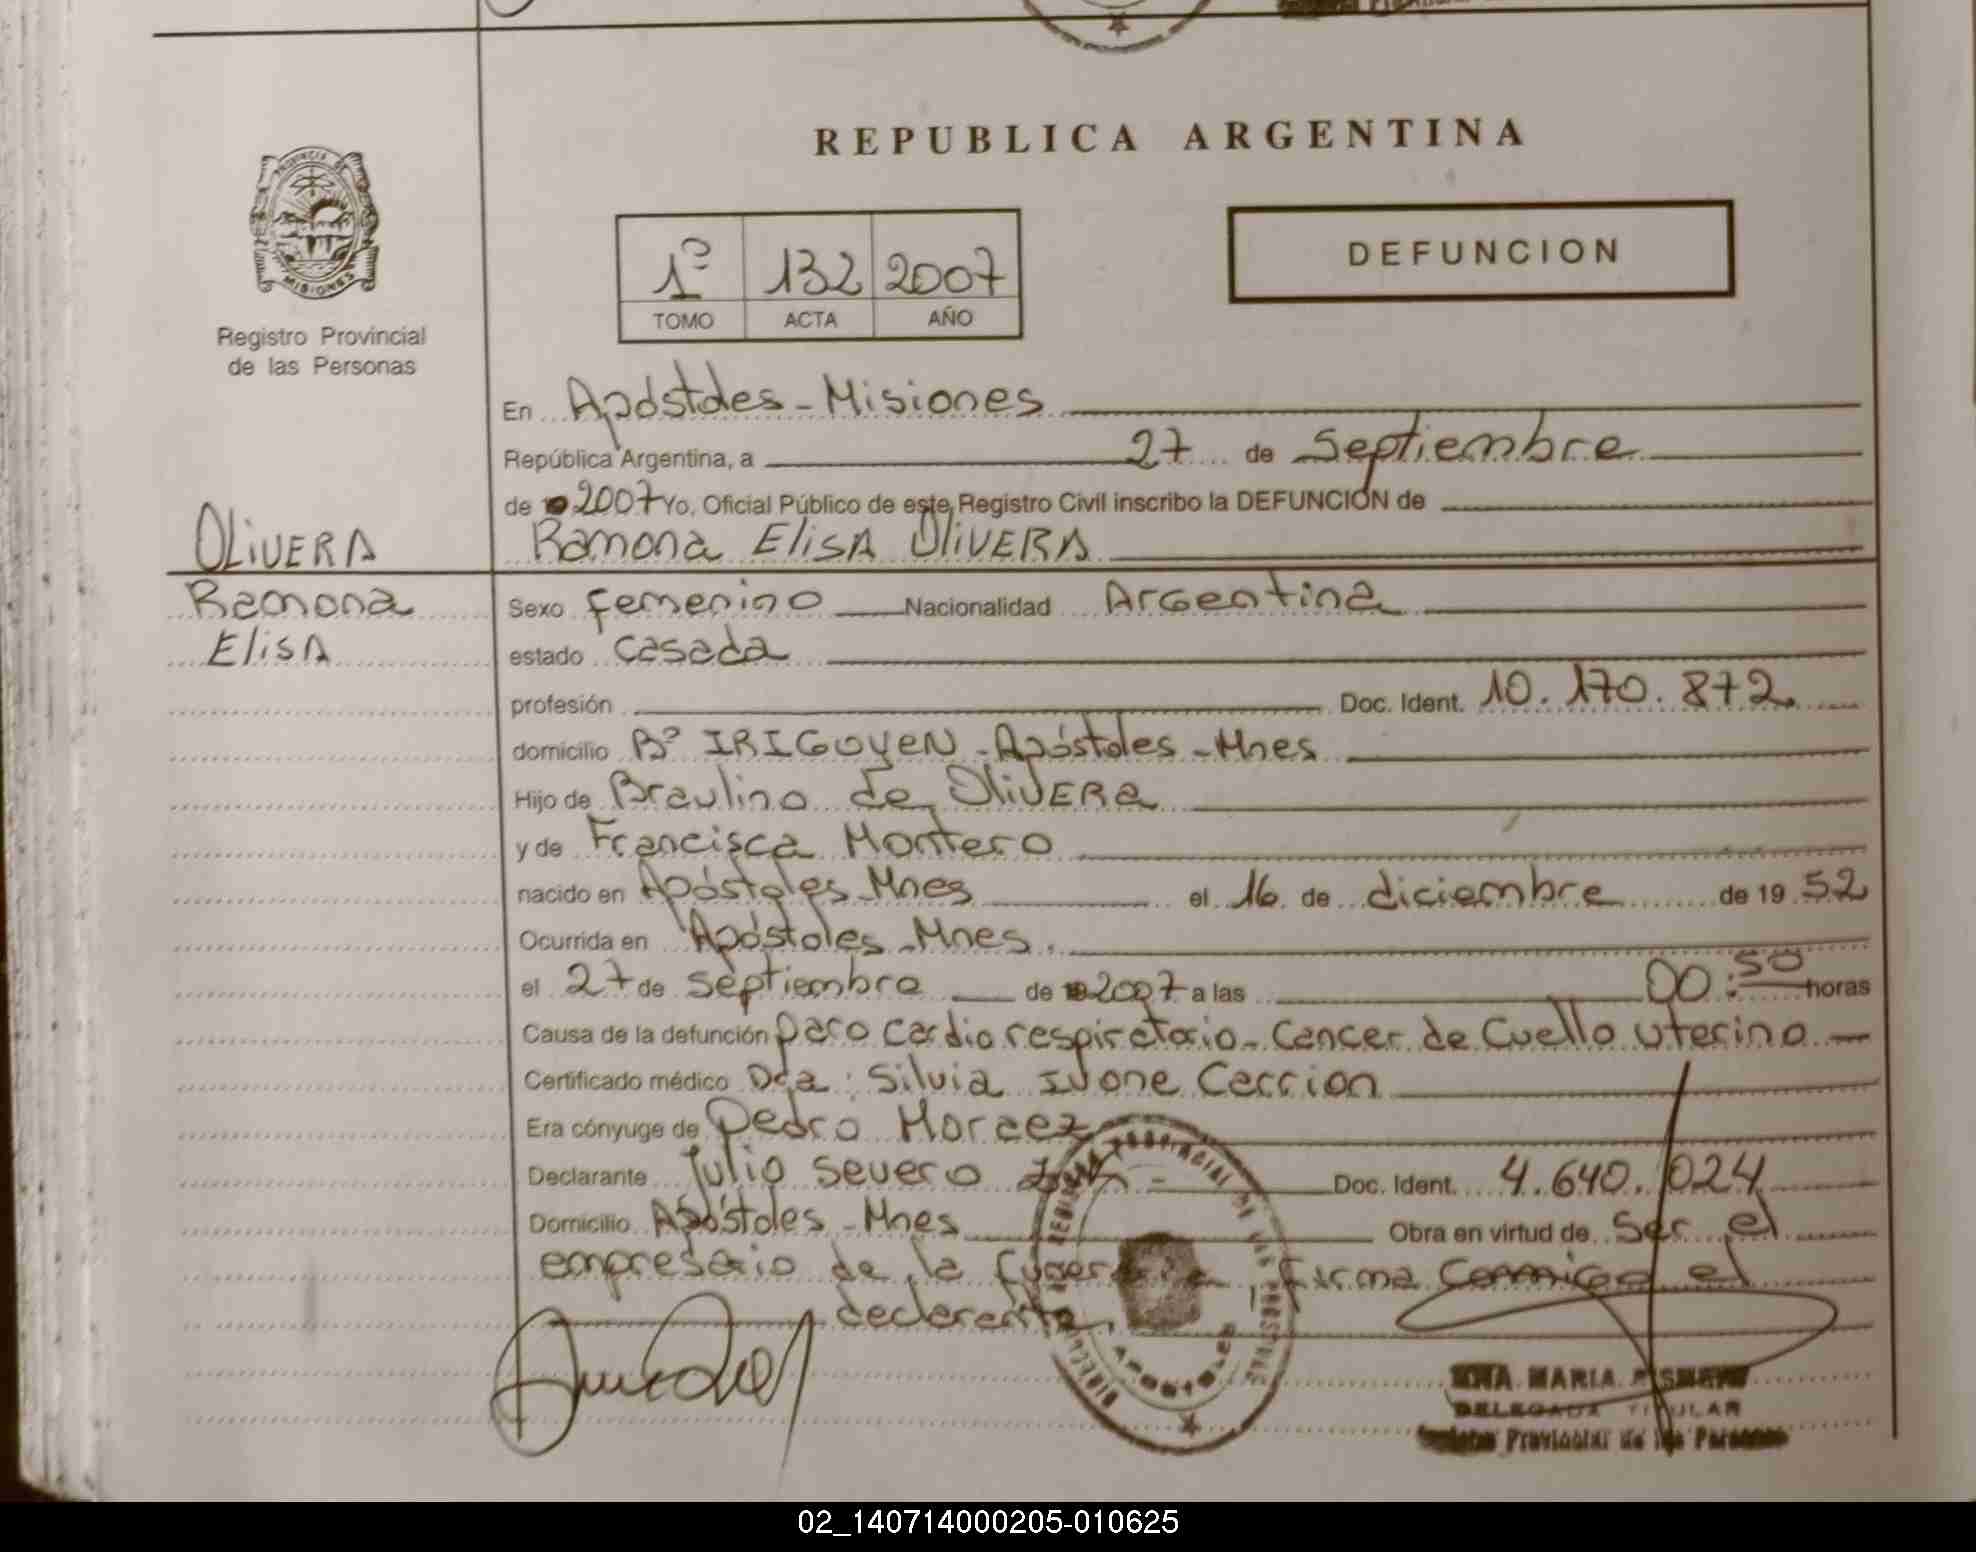 REPUBLICA ARGENTINA
PROVINCIA DE
MISIONES
Registro Provincial
de las Personas
DEFUNCION
1º 132 2007
TOMO ACTA AÑO
En Apóstoles - Misiones
República Argentina, a 27 de septiembre
de 2007 Yo, Oficial Público de este Registro Civil inscribo la DEFUNCION de
OLIVERA
Ramona Elisa OLIVERA
Ramona
Elisa
Sexo femenino Nacionalidad Argentina
estado casada
profesión Doc. Ident. 10.170.872.
domicilio Bº IRIGOYEN - Apóstoles - Mnes
Hijo de Braulino de OLIVERA
y de Francisca Montero
nacido en Apóstoles - Mnes el 16 de diciembre de 19 52
Ocurrida en Apóstoles - Mnes.
el 27 de septiembre de 2007 a las 00:50 horas
Causa de la defunción paro cardio respiratorio - Cancer de Cuello uterino
Certificado médico Dra: Silvia Ivone Carrion
Era cónyuge de Pedro Moraez
Declarante Julio Severo Doc. Ident. 4.640.024
Domicilio Apóstoles - Mnes Obra en virtud de ser el
empresario de la funeraria, firma conmigo el
declarante.
ANA MARIA
DELEGADA TITULAR
Registro Provincial de las Personas
02_140714000205-010625